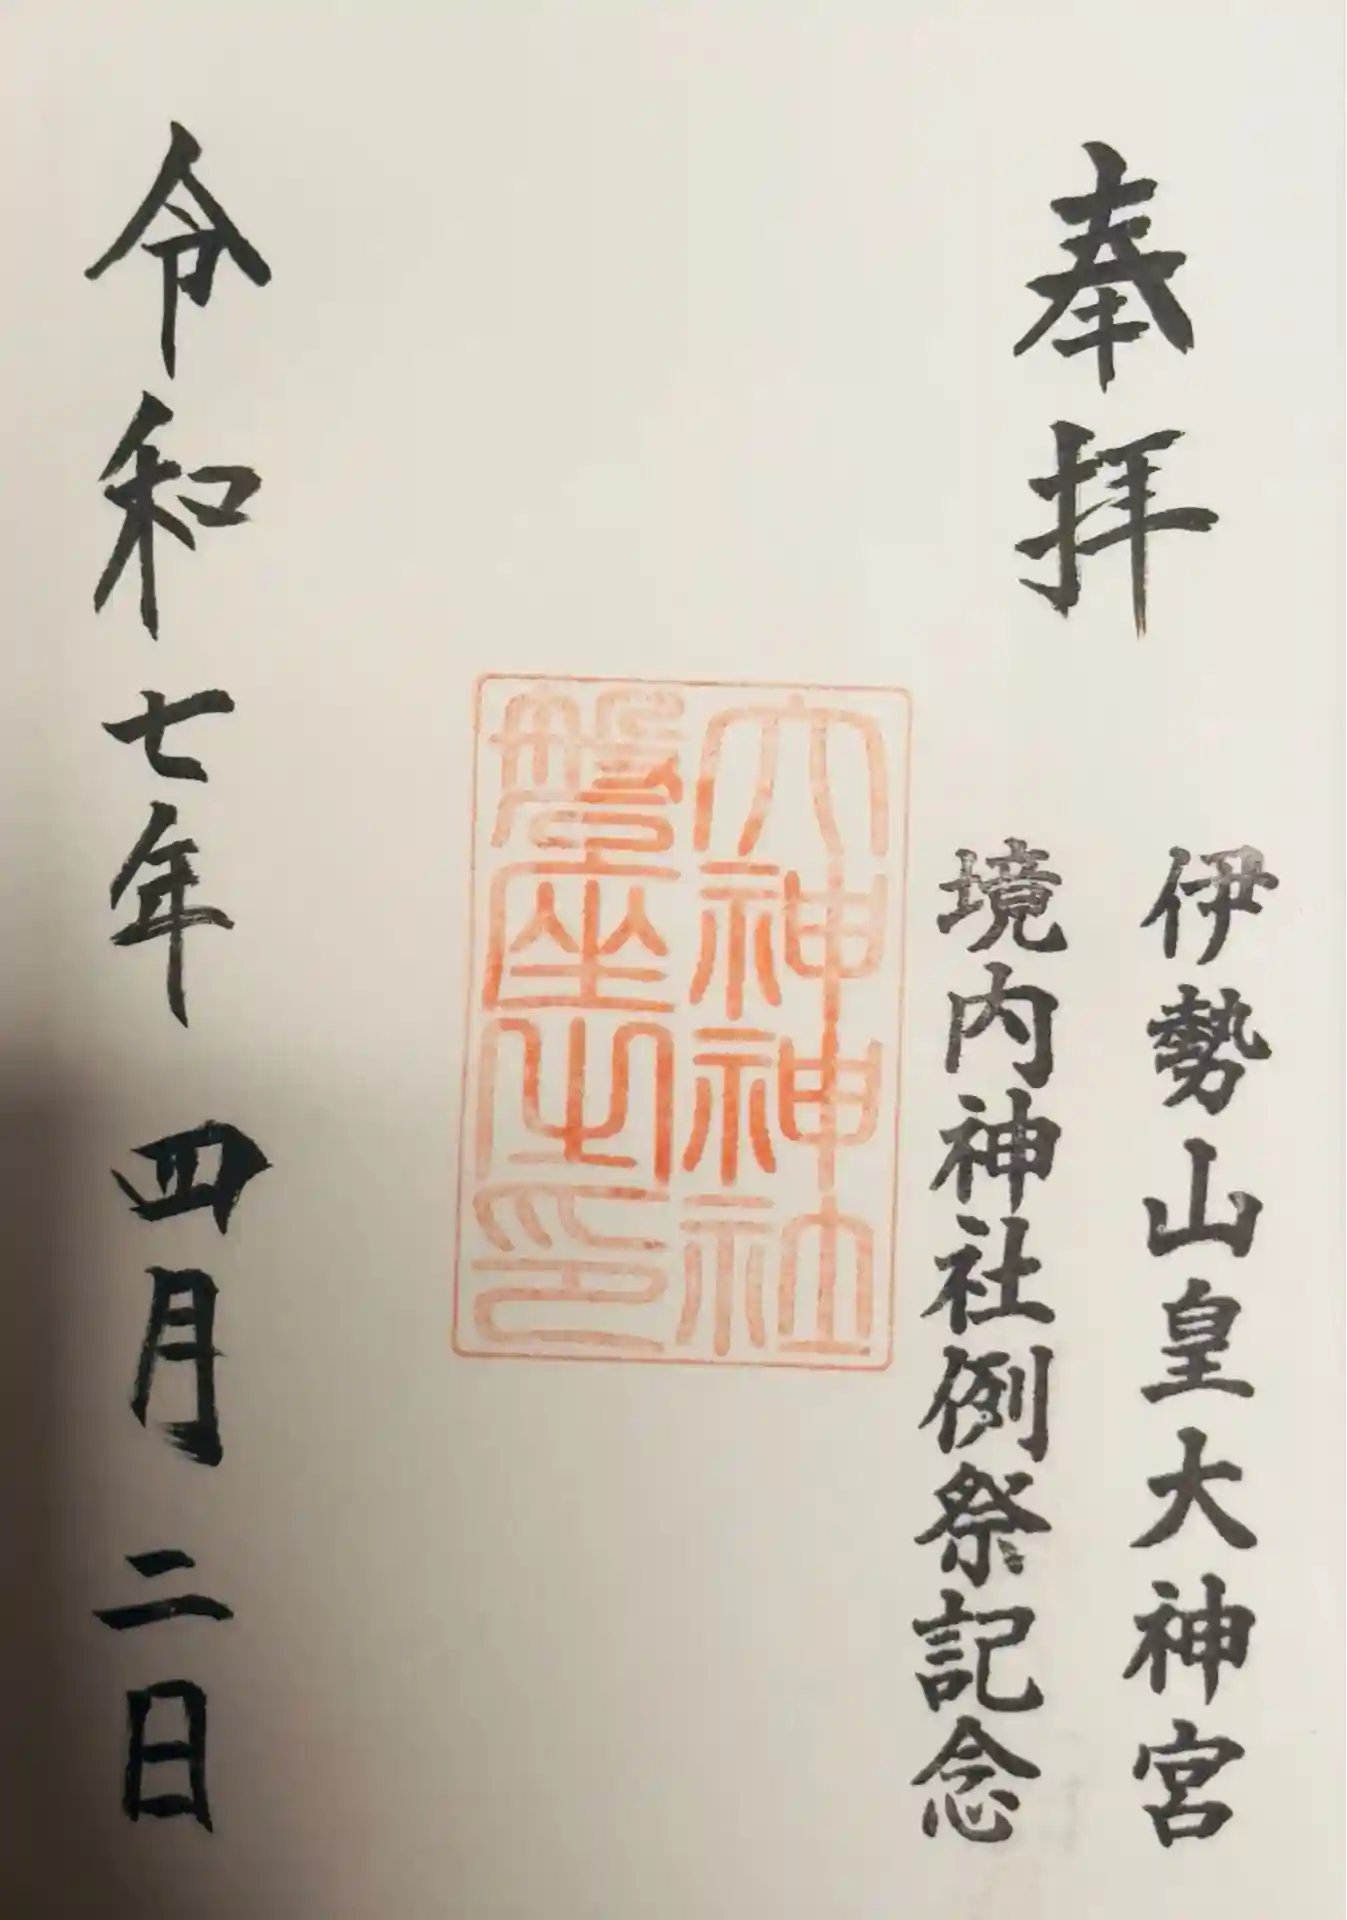 奉拝
伊勢山皇大神宮
境内神社例祭記念
大神神社
磐座之印
令和七年 四月 二日